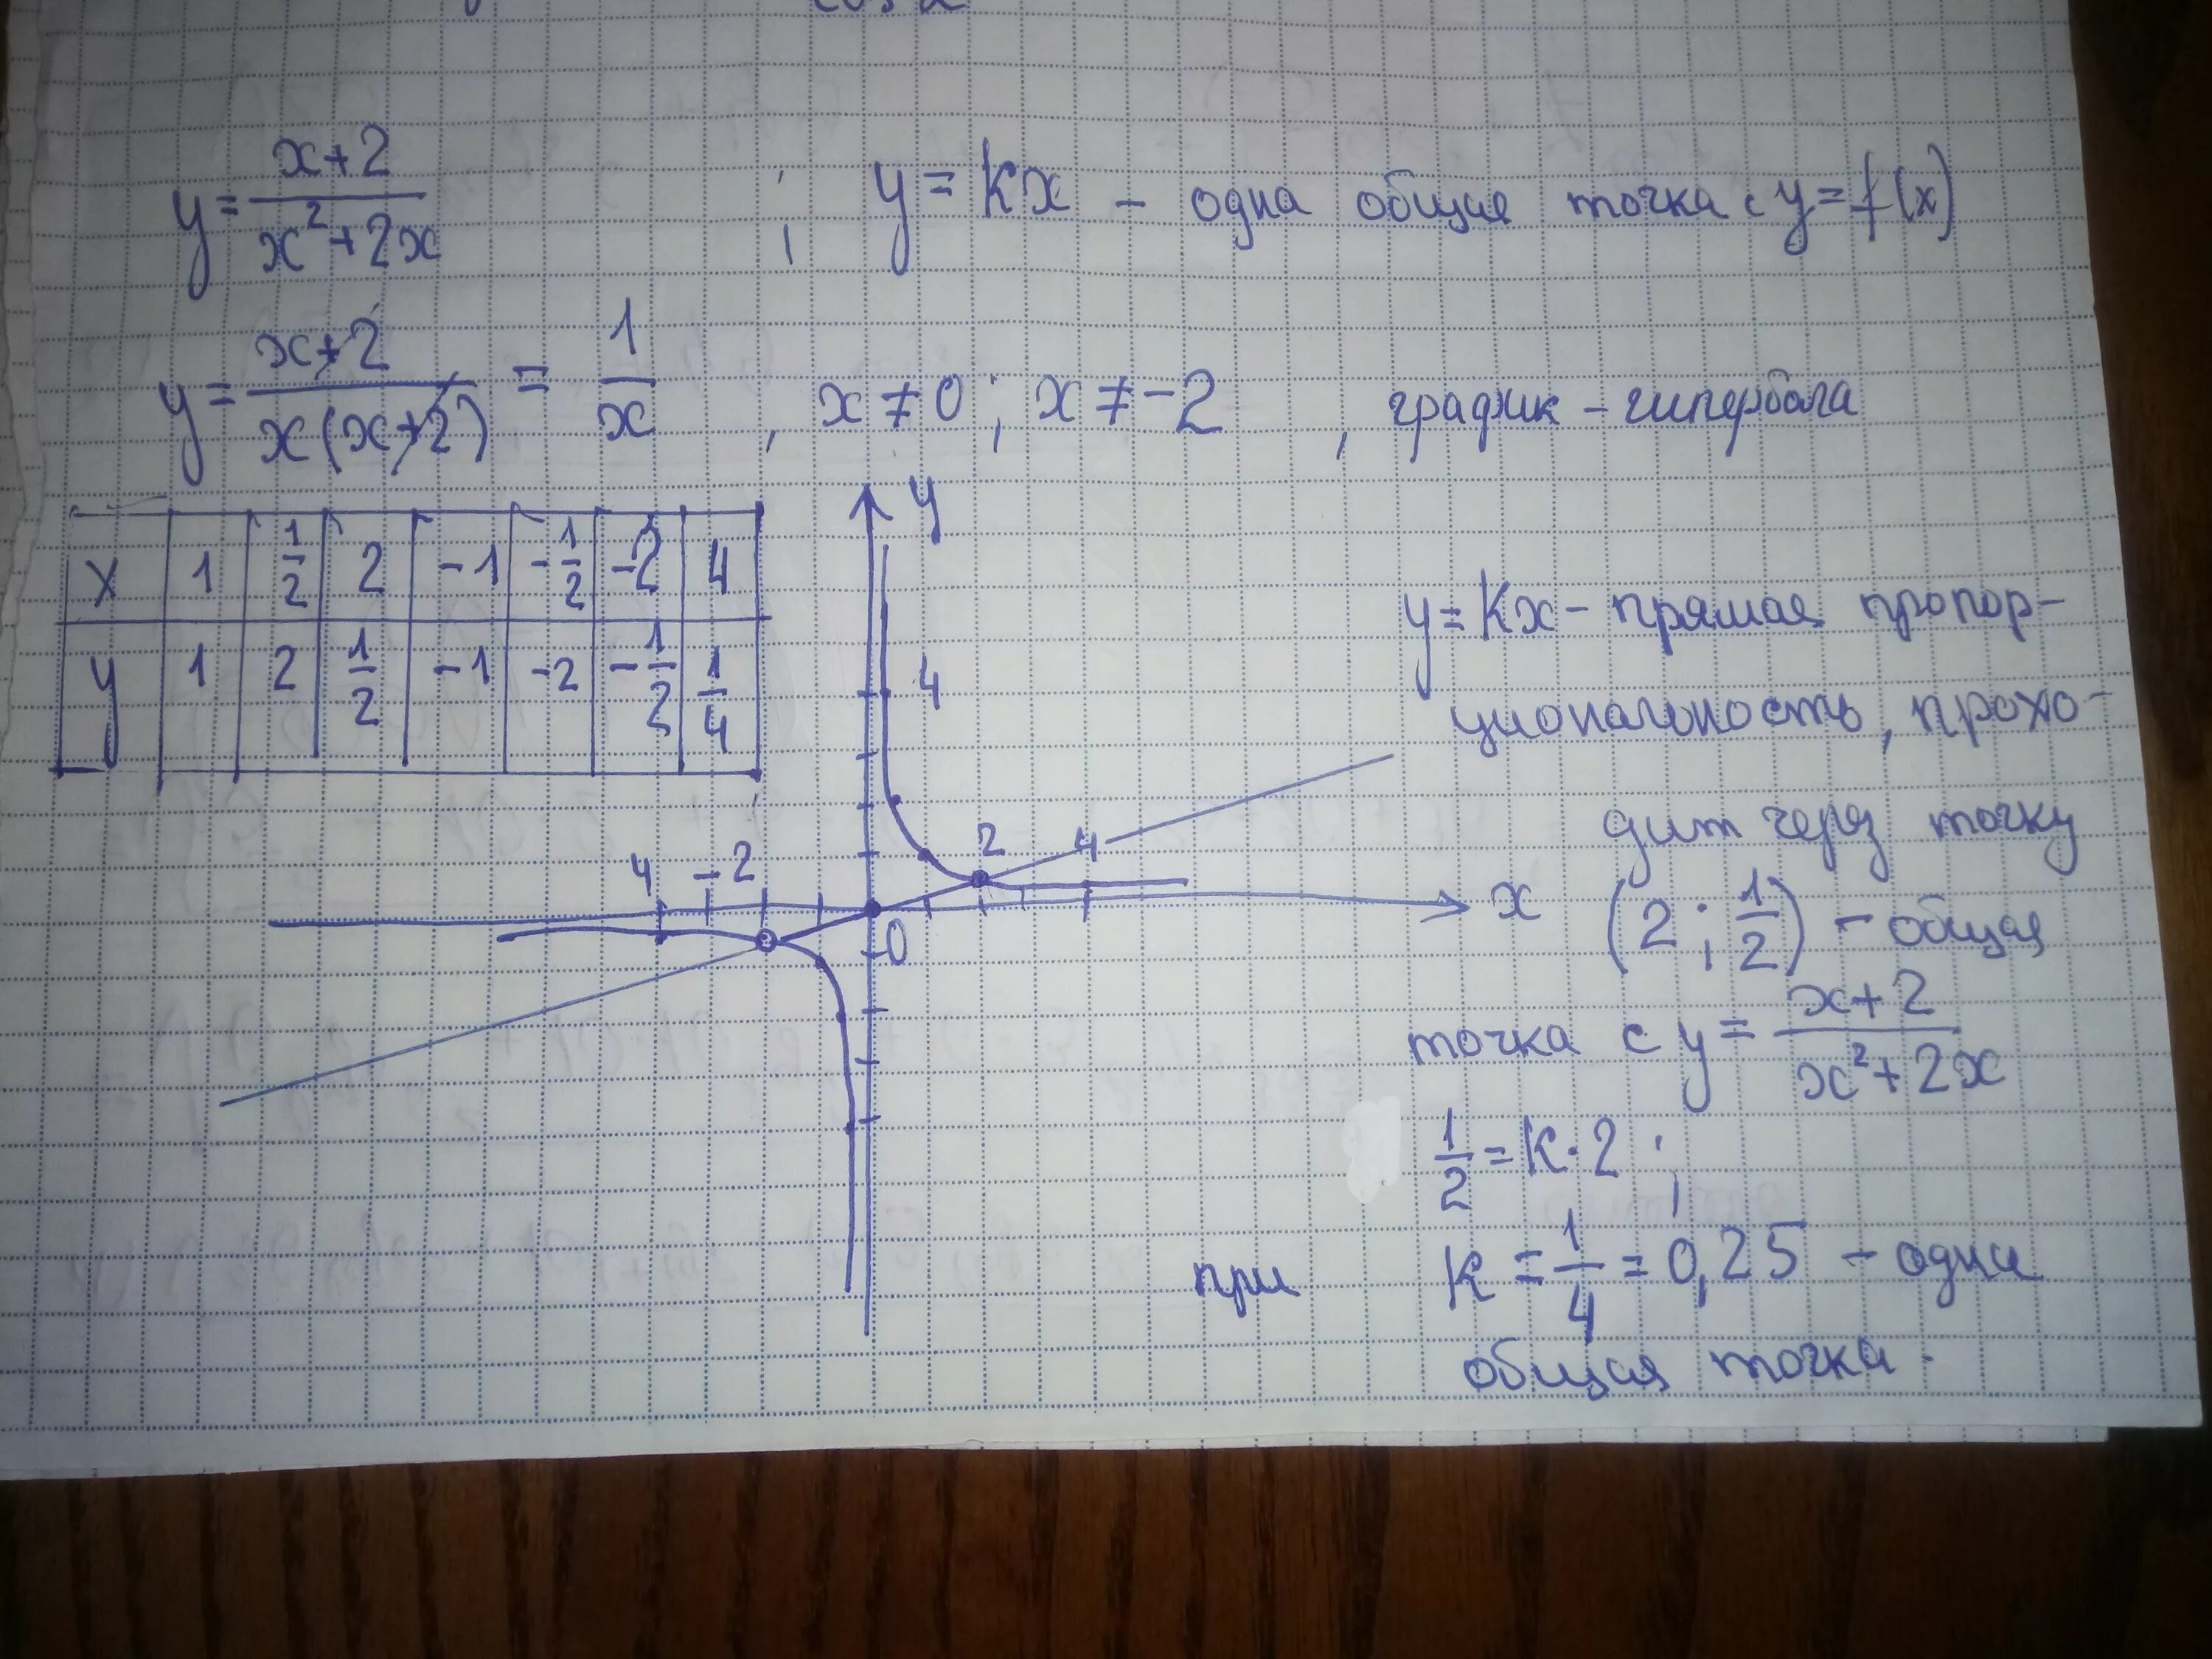 cos α
y = (x+2)/(x²+2x) ; y = kx – одна общая точка с y = f(x)
y = (x+2)/(x(x+2)) = 1/x , x ≠ 0 ; x ≠ -2 , график – гипербола
x | 1 | 1/2 | 2 | -1 | -1/2 | -2 | 4
y | 1 | 2 | 1/2 | -1 | -2 | -1/2 | 1/4
y
4
4 -2 2 4
0 x
y = kx – прямая пропор-
циональность, прохо-
дит через точку
(2 ; 1/2) – общая
точка с y = (x+2)/(x²+2x)
1/2 = k·2 ;
при k = 1/4 = 0,25 – одна
общая точка.